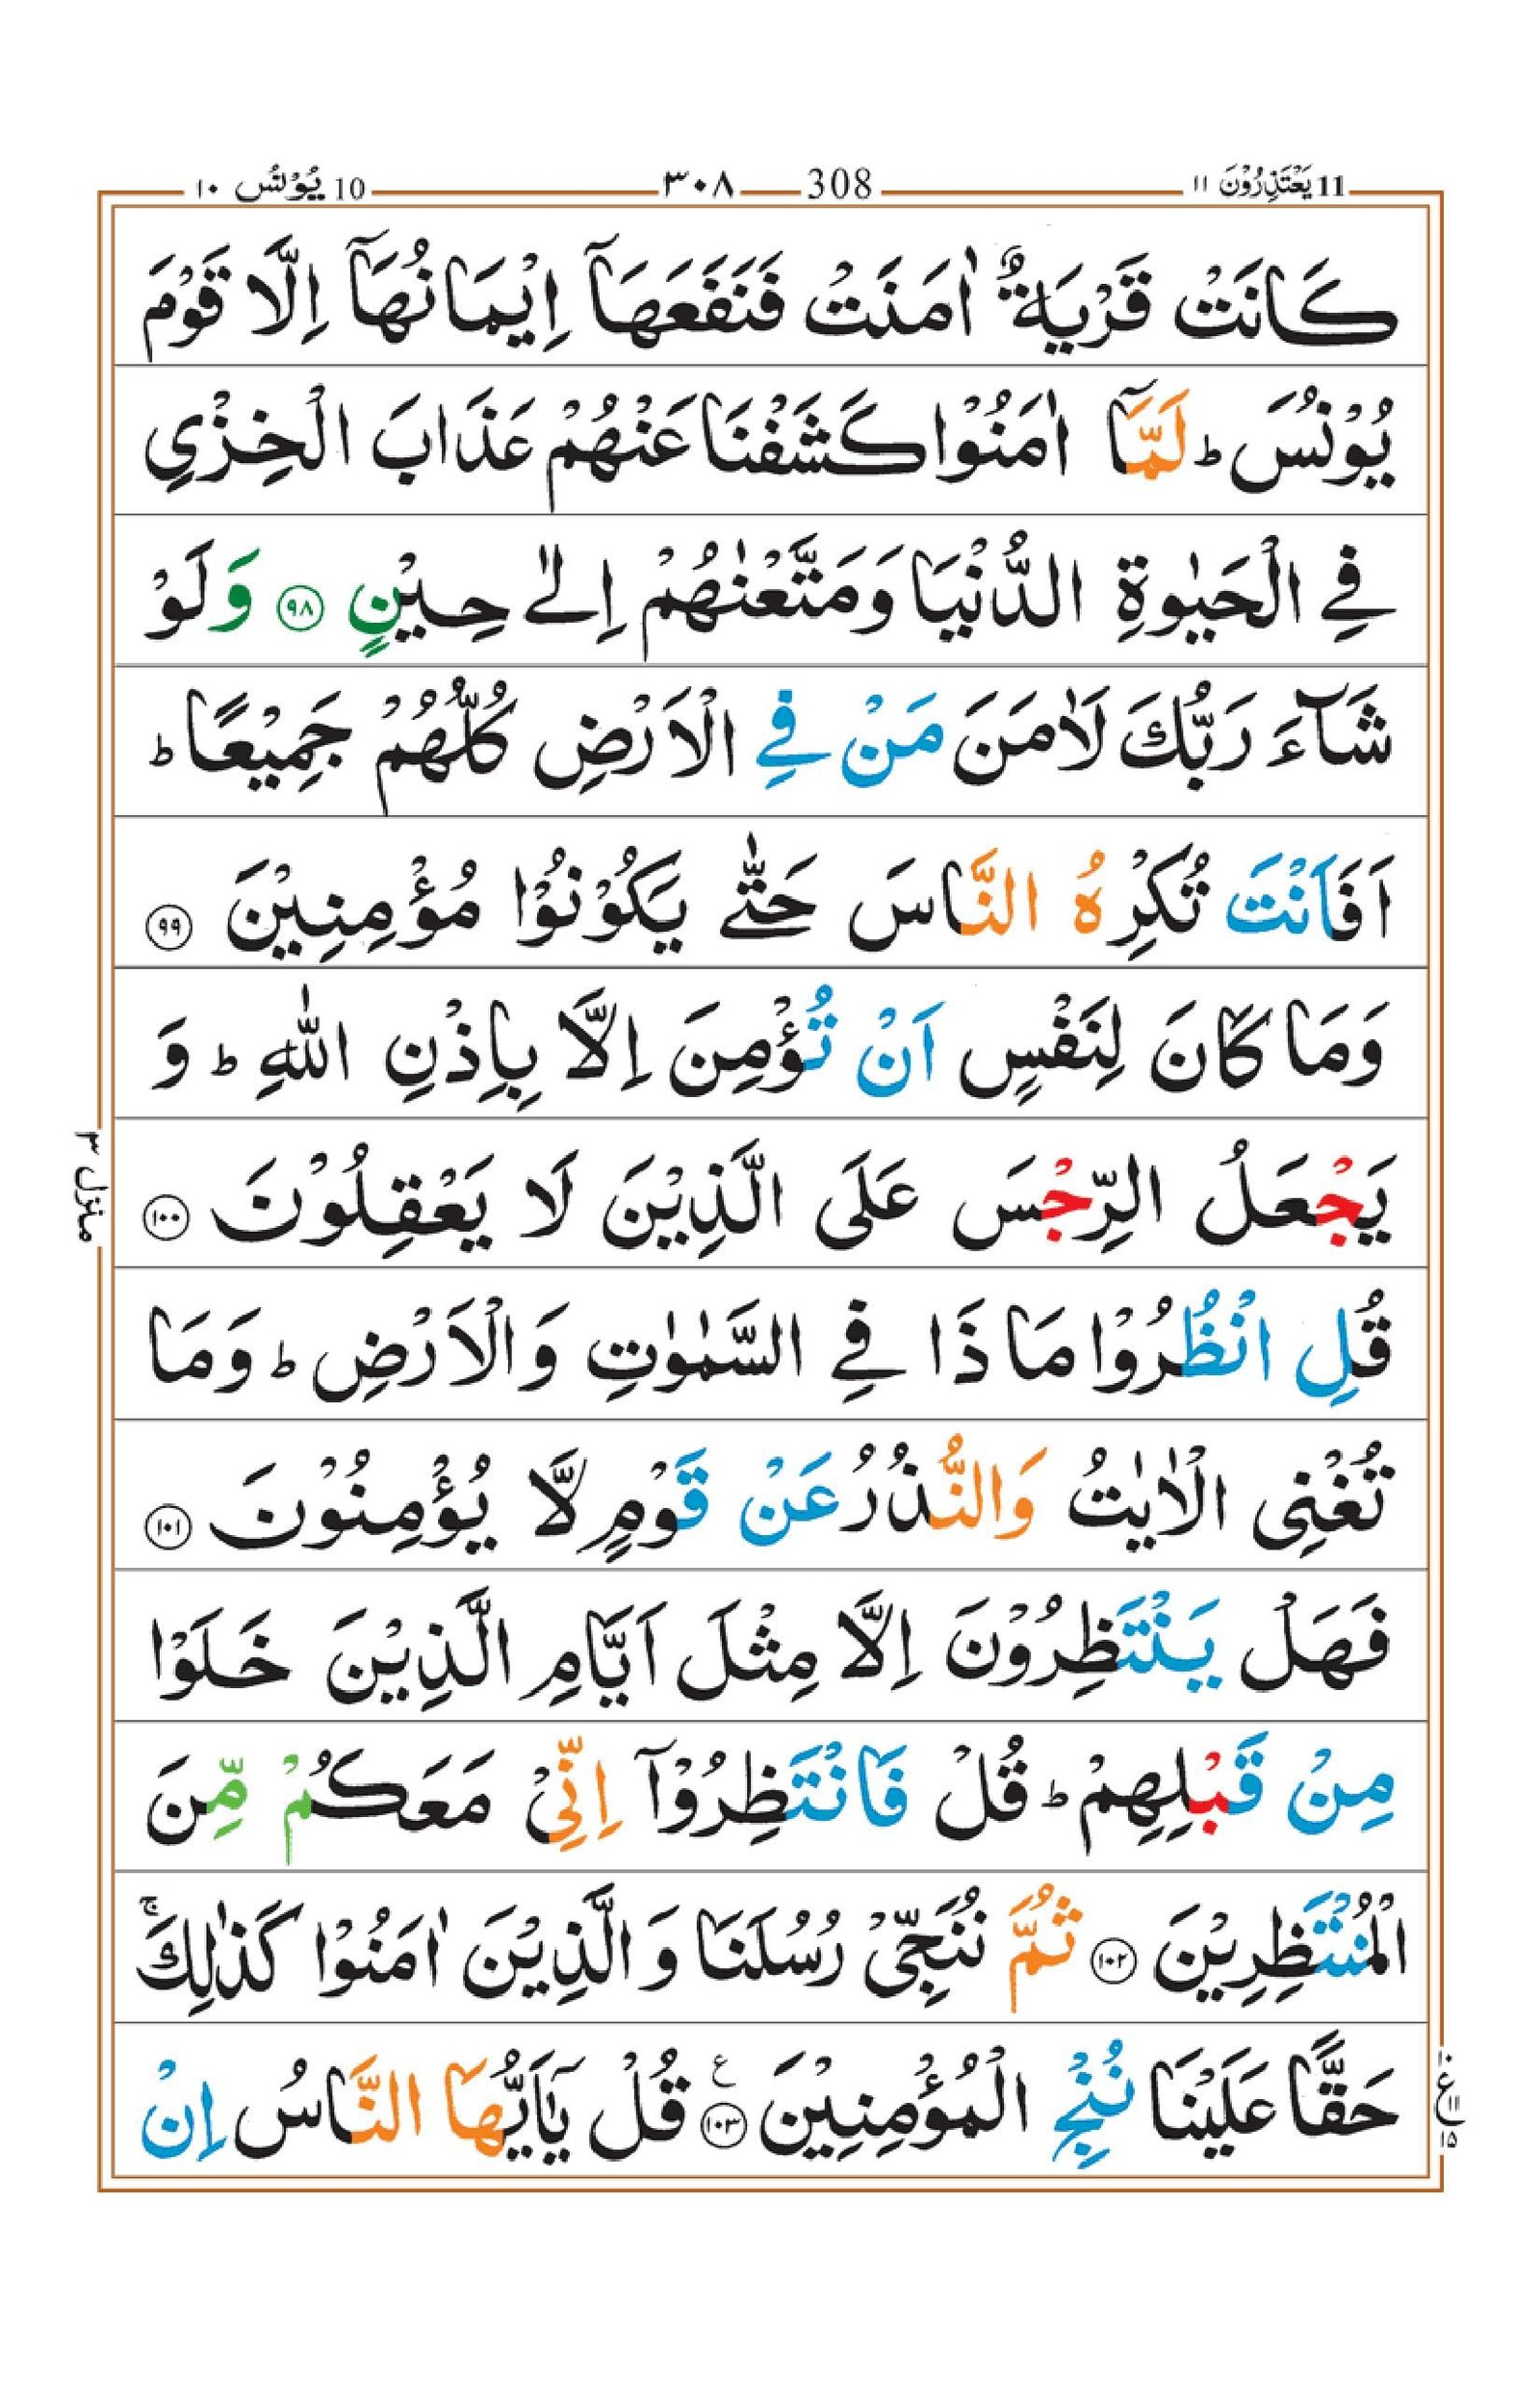 11 يَعْتَذِرُوْنَ ١١
308 ٣٠٨
10 يُوْنُس ١٠
كَانَتْ قَرْيَةٌ اٰمَنَتْ فَنَفَعَهَاۤ اِيْمَانُهَاۤ اِلَّا قَوْمَ
يُوْنُسَ ؕ لَمَّاۤ اٰمَنُوْا كَشَفْنَا عَنْهُمْ عَذَابَ الْخِزْيِ
فِي الْحَيٰوةِ الدُّنْيَا وَمَتَّعْنٰهُمْ اِلٰى حِيْنٍ ۝٩٨ وَلَوْ
شَآءَ رَبُّكَ لَاٰمَنَ مَنْ فِي الْاَرْضِ كُلُّهُمْ جَمِيْعًا ؕ
اَفَاَنْتَ تُكْرِهُ النَّاسَ حَتّٰى يَكُوْنُوْا مُؤْمِنِيْنَ ۝٩٩
وَمَا كَانَ لِنَفْسٍ اَنْ تُؤْمِنَ اِلَّا بِاِذْنِ اللّٰهِ ؕ وَ
يَجْعَلُ الرِّجْسَ عَلَى الَّذِيْنَ لَا يَعْقِلُوْنَ ۝١٠٠
قُلِ انْظُرُوْا مَاذَا فِي السَّمٰوٰتِ وَالْاَرْضِ ؕ وَمَا
تُغْنِى الْاٰيٰتُ وَالنُّذُرُ عَنْ قَوْمٍ لَّا يُؤْمِنُوْنَ ۝١٠١
فَهَلْ يَنْتَظِرُوْنَ اِلَّا مِثْلَ اَيَّامِ الَّذِيْنَ خَلَوْا
مِنْ قَبْلِهِمْ ؕ قُلْ فَانْتَظِرُوْۤا اِنِّيْ مَعَكُمْ مِّنَ
الْمُنْتَظِرِيْنَ ۝١٠٢ ثُمَّ نُنَجِّيْ رُسُلَنَا وَالَّذِيْنَ اٰمَنُوْا كَذٰلِكَ ۚ
حَقًّا عَلَيْنَا نُنْجِ الْمُؤْمِنِيْنَ ۝١٠٣ ع قُلْ يٰۤاَيُّهَا النَّاسُ اِنْ
منزل ٣
١٠
ع ١١
١٥